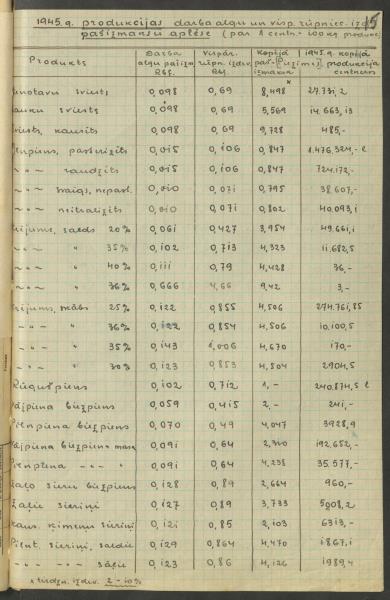 1945.g. produkcijas darba algu un visp. rūpniec. izd.
pašizmansu aplēse (par 1 centn. - 100 kg produkc.)
15
Produkts Darba algu pašizm. Rbļ. Vispār. rūpn. izdev. Rbļ. Kopējā 1945.g. kopējā produkcija centneros
sviests 0,098 0,69 8,498 27.731,2
sviests 0,098 0,69 5,569 14.663,13
sviests, kausēts 0,098 0,69 9,728 485,-
piens, pasterizēts 0,015 0,106 0,847 1.476.324,- l
-"- raudzēts 0,015 0,106 0,847 724.172,-
-"- nepast. 0,010 0,071 0,795 38.607,-
-"- neitralizēts 0,010 0,071 0,802 40.093,1
krējums, salds 20% 0,061 0,427 3,954 49.661,1
-"- " 35% 0,102 0,713 4,323 11.682,5
-"- " 40% 0,111 0,79 4,428 36,-
-"- " 36% 0,666 4,66 9,42 3,-
krējums, skābs 25% 0,122 0,855 4,506 274.761,85
-"- " 36% 0,122 0,854 4,506 10.100,5
-"- " 35% 0,143 1,006 4,670 170,-
-"- " 30% 0,123 0,853 4,504 2904,5
Rūgušpiens 0,102 0,712 1,- 240.874,5 l
Vājpiena biezpiens 0,059 0,415 2,- 241,-
Pilnpiena biezpiens 0,070 0,49 4,047 3928,9
Vājpiena biezpiena masa 0,091 0,64 2,310 192.652,-
Pilnpiena -"- " 0,091 0,64 4,238 35.577,-
Zaļo sieru biezpiens 0,128 0,89 2,664 960,-
Zaļie sieriņi 0,127 0,89 3,733 5908,2
ķimeņu sieriņi 0,121 0,85 2,103 6313,-
Pilnt. sieriņi, saldie 0,129 0,864 4,470 1867,1
-"- sāļie 0,123 0,86 4,126 1989,4
x tirdzn. izdev. 2-10%